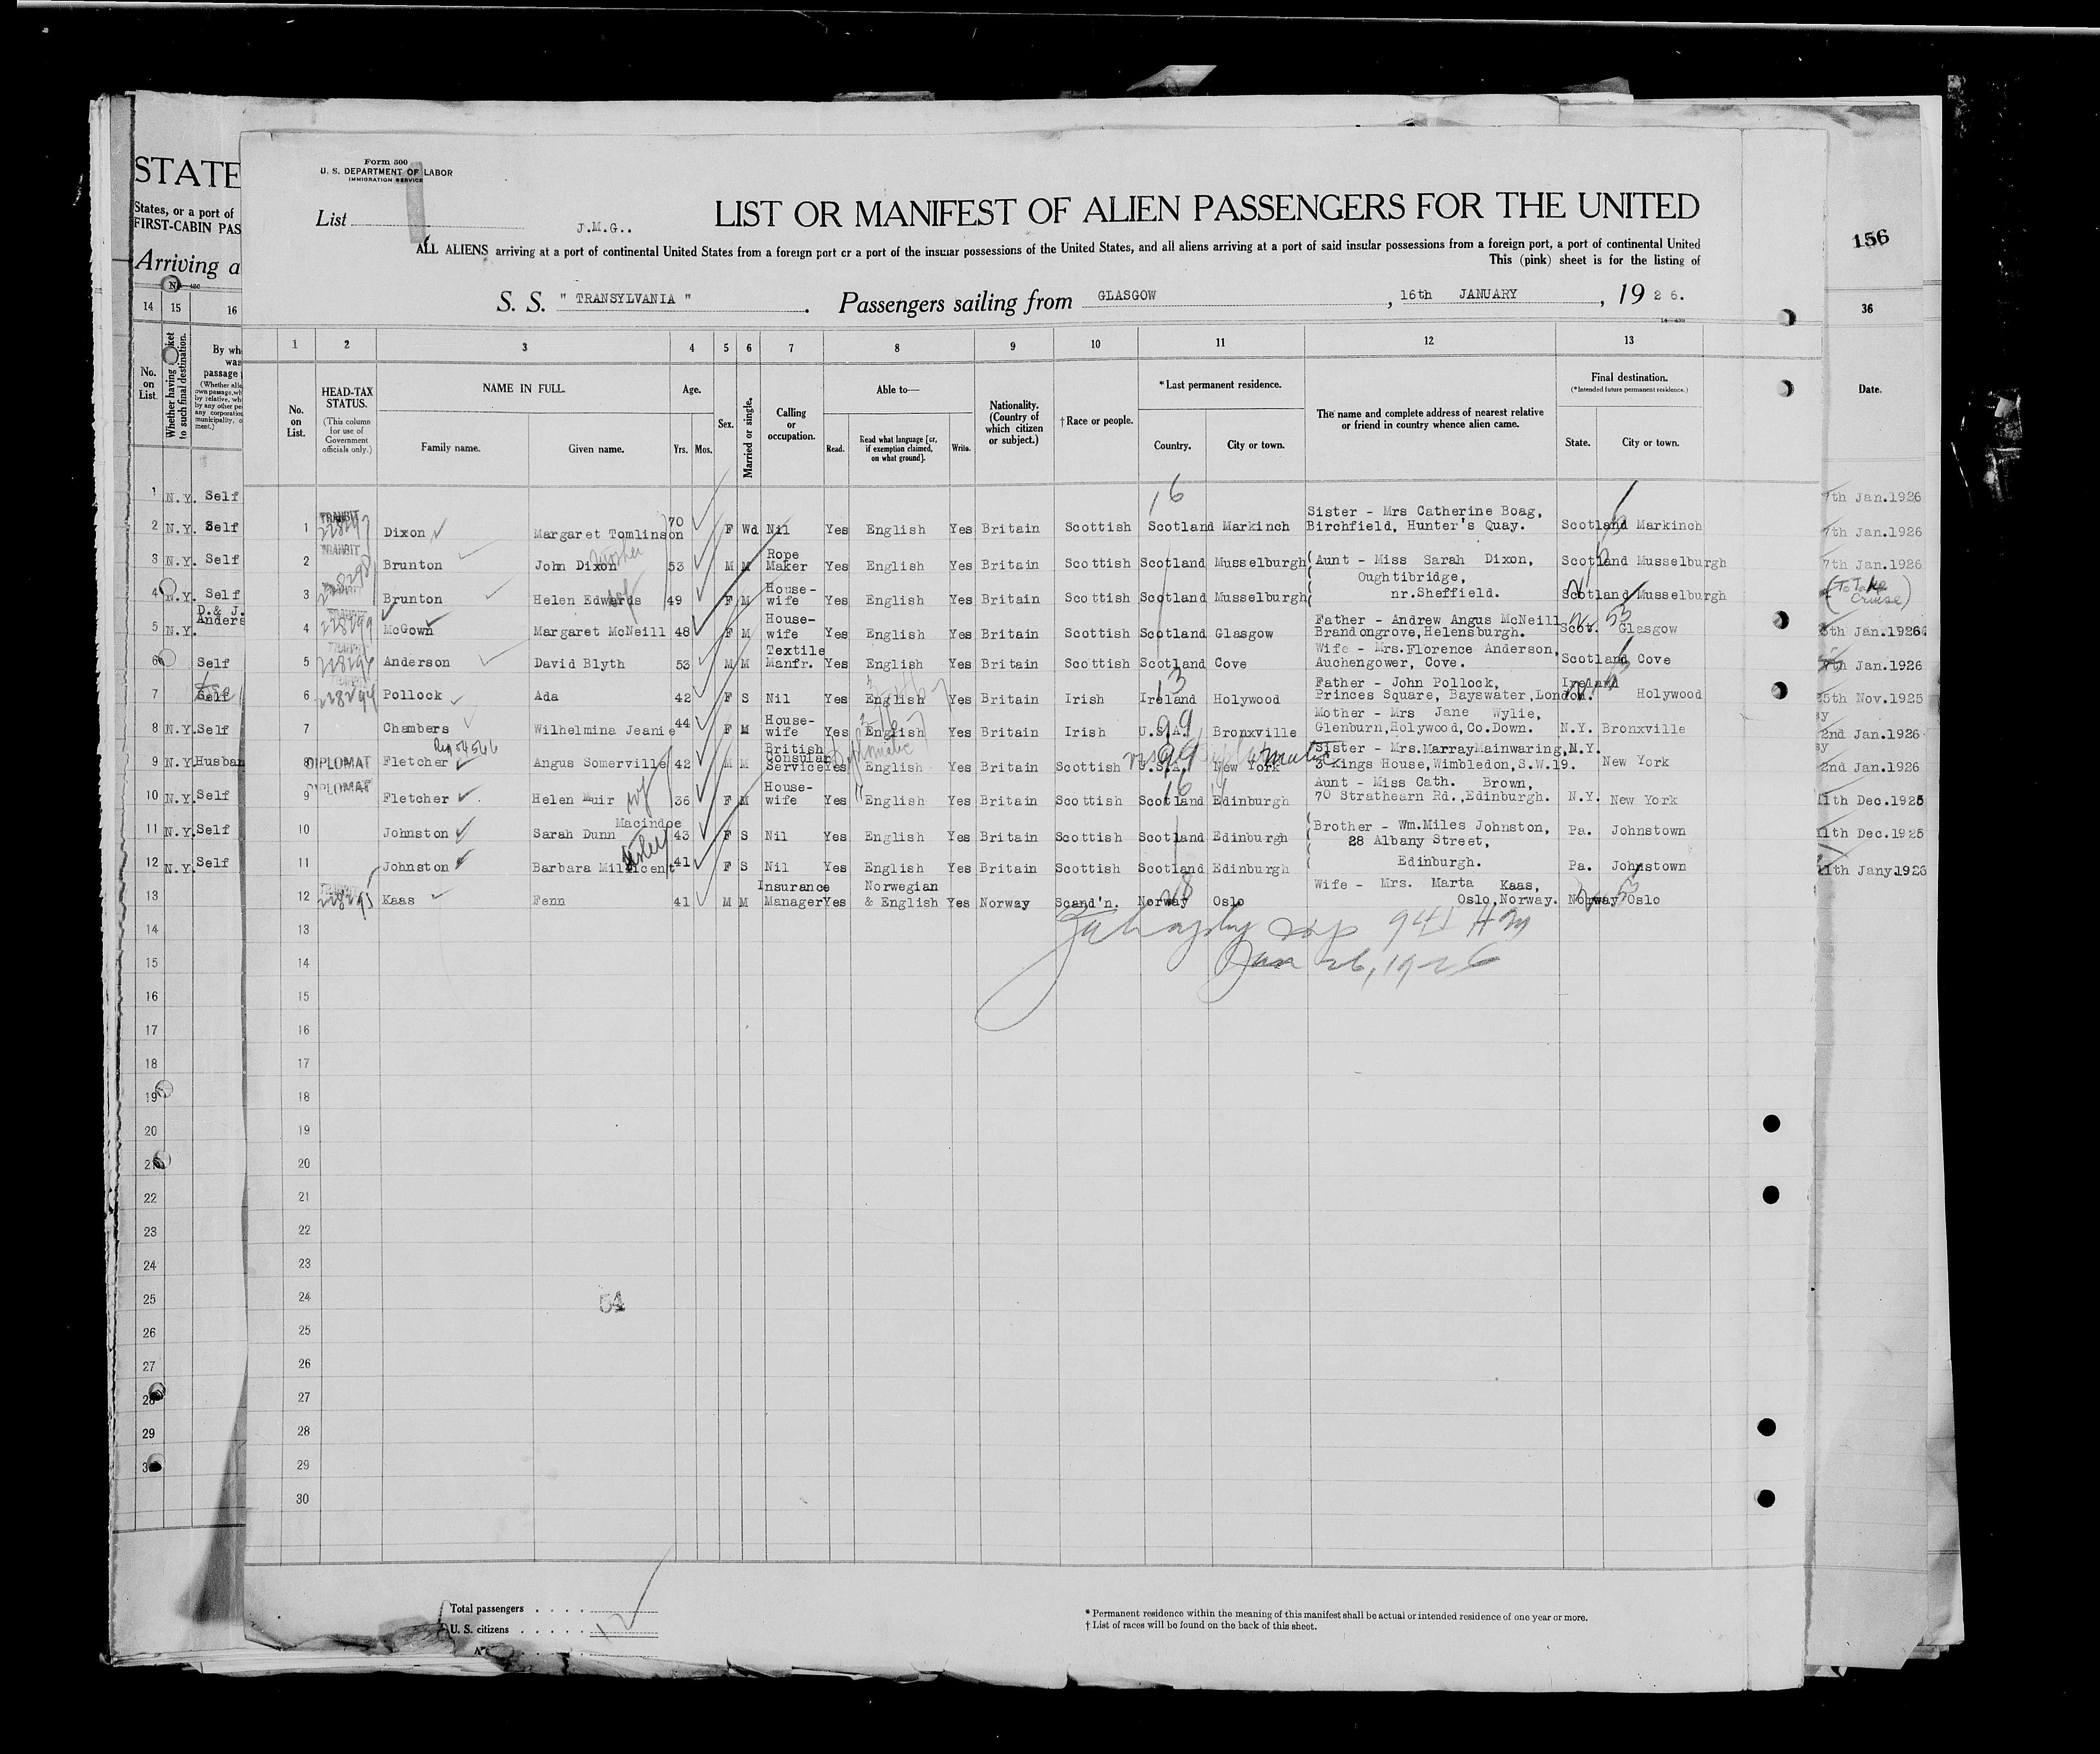 Form 500
U. S. DEPARTMENT OF LABOR
IMMIGRATION SERVICE
STATE
States, or a port of
FIRST-CABIN PAS
Arriving a
List
J.M.G..
LIST OR MANIFEST OF ALIEN PASSENGERS FOR THE UNITED
ALL ALIENS arriving at a port of continental United States from a foreign port or a port of the insular possessions of the United States, and all aliens arriving at a port of said insular possessions from a foreign port, a port of continental United
This (pink) sheet is for the listing of
156
S. S. " TRANSYLVANIA ". Passengers sailing from GLASGOW, 16th JANUARY, 19 2 6.
14 15 16 1 2 3 4 5 6 7 8 9 10 11 12 13 36
No. on List. Whether having ticket to such final destination. By wh was passage
No. on List. HEAD-TAX STATUS. (This column for use of Government officials only.) NAME IN FULL. Family name. Given name. Age. Yrs. Mos. Sex. Married or single. Calling or occupation. Able to— Read. Read what language [or, if exemption claimed, on what ground]. Write. Nationality. (Country of which citizen or subject.) †Race or people. *Last permanent residence. Country. City or town. The name and complete address of nearest relative or friend in country whence alien came. Final destination. (*Intended future permanent residence.) State. City or town. Date.
1 TRANSIT 228297 Dixon Margaret Tomlinson 70 F Wd Nil Yes English Yes Britain Scottish Scotland Markinch Sister - Mrs Catherine Boag, Birchfield, Hunter's Quay. Scotland Markinch
2 TRANSIT 228298 Brunton John Dixon 53 M M Rope Maker Yes English Yes Britain Scottish Scotland Musselburgh Aunt - Miss Sarah Dixon, Oughtibridge, nr.Sheffield. Scotland Musselburgh
3 TRANSIT Brunton Helen Edwards wf 49 F M House-wife Yes English Yes Britain Scottish Scotland Musselburgh Scotland Musselburgh
4 TRANSIT 228299 McGown Margaret McNeill 48 F M House-wife Yes English Yes Britain Scottish Scotland Glasgow Father - Andrew Angus McNeill Brandongrove,Helensburgh. Scot. Glasgow
5 TRANSIT 228294 Anderson David Blyth 53 M M Textile Manfr. Yes English Yes Britain Scottish Scotland Cove Wife - Mrs.Florence Anderson, Auchengower, Cove. Scotland Cove
6 TRANSIT 228294 Pollock Ada 42 F S Nil Yes English Yes Britain Irish Ireland Holywood Father - John Pollock, Princes Square, Bayswater,London. Ireland Holywood
7 Chambers Wilhelmina Jeanie 44 F M House-wife Yes English Yes Britain Irish U.S.A. Bronxville Mother - Mrs Jane Wylie, Glenburn,Holywood,Co.Down. N.Y. Bronxville
8 DIPLOMAT Fletcher Angus Somerville 42 M M British Consular Service Yes English Yes Britain Scottish U.S.A. New York Sister - Mrs.MarrayMainwaring, 3 Kings House,Wimbledon,S.W.19. N.Y. New York
9 DIPLOMAT Fletcher Helen Muir wf 36 F M House-wife Yes English Yes Britain Scottish Scotland Edinburgh Aunt - Miss Cath. Brown, 70 Strathearn Rd.,Edinburgh. N.Y. New York
10 Johnston Sarah Dunn Macindoe 43 F S Nil Yes English Yes Britain Scottish Scotland Edinburgh Brother - Wm.Miles Johnston, 28 Albany Street, Edinburgh. Pa. Johnstown
11 Johnston Barbara Millicent sister 41 F S Nil Yes English Yes Britain Scottish Scotland Edinburgh Pa. Johnstown
12 TRANSIT 228295 Kaas Fenn 41 M M Insurance Manager Yes Norwegian & English Yes Norway Scand'n. Norway Oslo Wife - Mrs. Marta Kaas, Oslo,Norway. Norway Oslo
13
14 Jan 26, 1926
15
16
17
18
19
20
21
22
23
24 54
25
26
27
28
29
30
1 N.Y. Self
2 N.Y. Self
3 N.Y. Self
4 N.Y. Self
5 N.Y. D.& J. Anders
6 Self
7 Self
8 N.Y. Self
9 N.Y. Husban
10 N.Y. Self
11 N.Y. Self
12 N.Y. Self
13
14
15
16
17
18
19
20
21
22
23
24
25
26
27
28
29
7th Jan.1926
7th Jan.1926
7th Jan.1926
(To Take Cruise)
8th Jan.1926
7th Jan.1926
25th Nov.1925
2nd Jan.1926
2nd Jan.1926
11th Dec.1925
11th Dec.1925
11th Jany.1926
Total passengers 12
U. S. citizens
* Permanent residence within the meaning of this manifest shall be actual or intended residence of one year or more.
† List of races will be found on the back of this sheet.